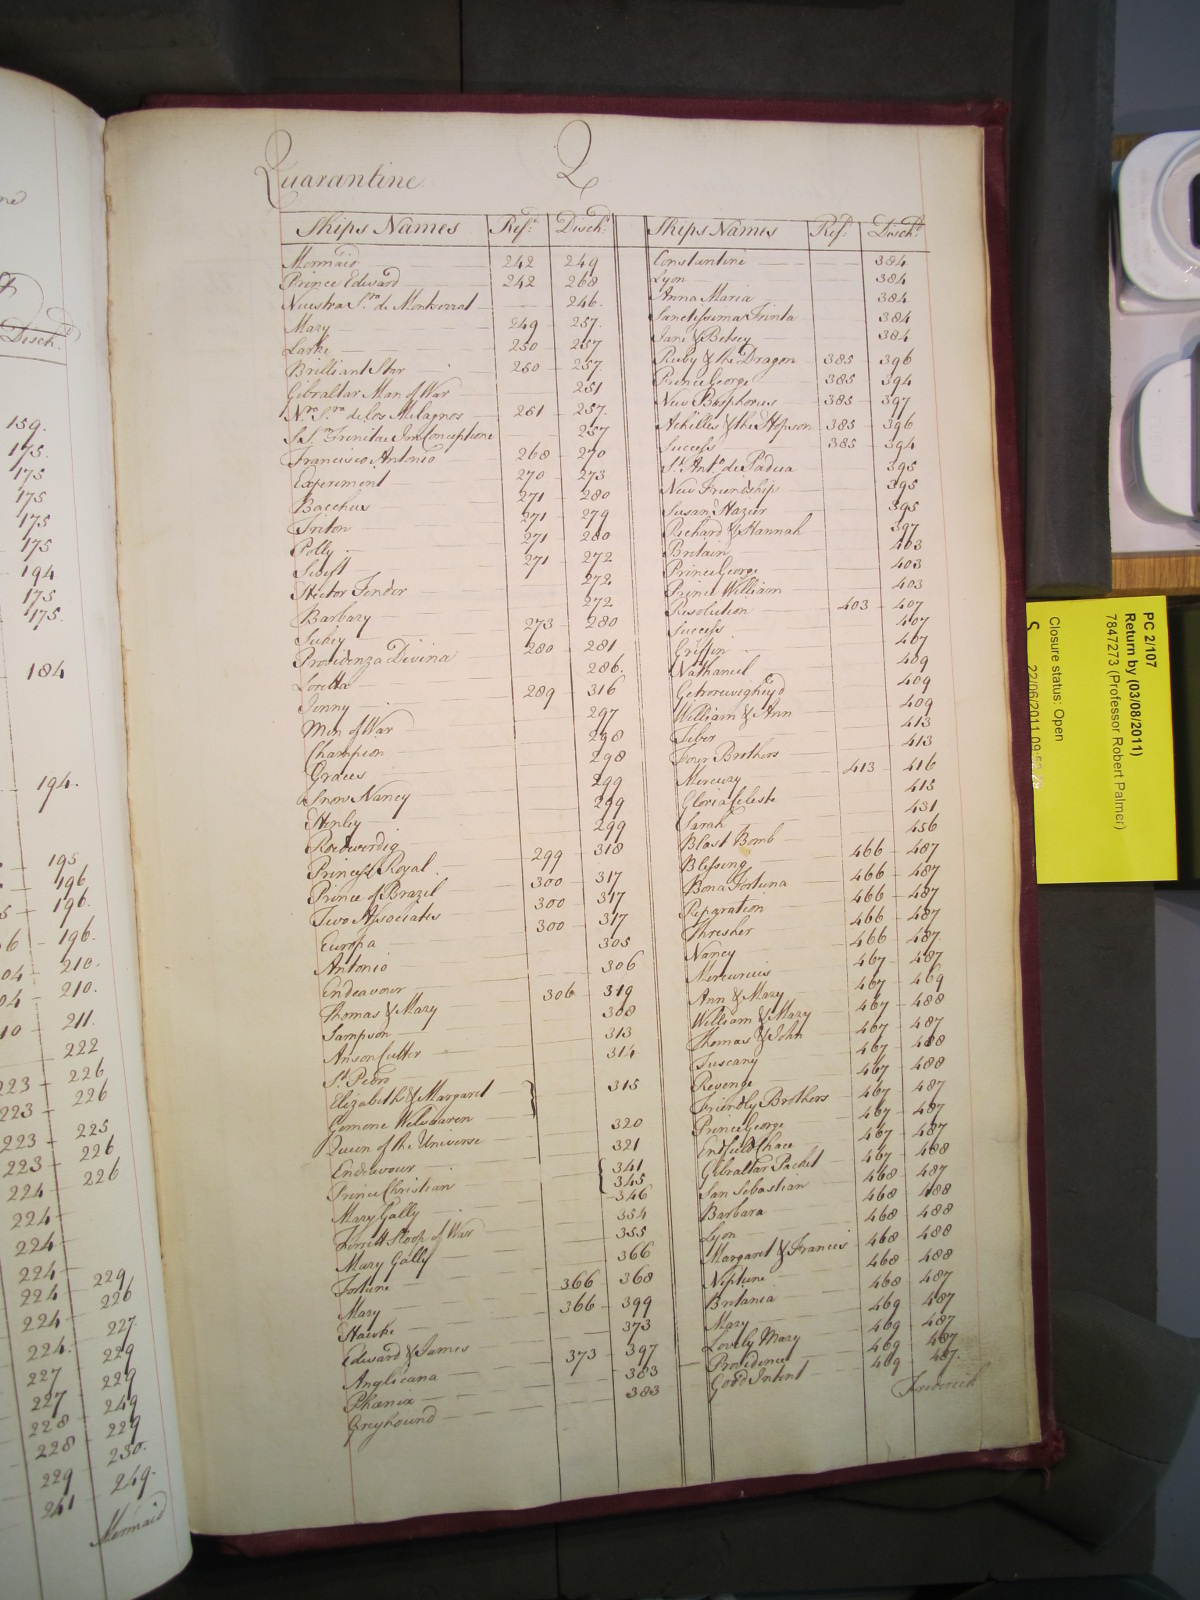 Quarantine Q
Ships Names Ref: Disch:
Mermaid 242 249
Prince Edward 242 268
Nuestra Sra de Montserrat 246.
Mary 249 257.
Larke 250 257
Brilliant Star 250 257.
Gibraltar Man of War 251
Nra Sra de los Milagros 251 257.
S.S. Trinitae Im Conceptione 257
Francisco Antonio 268 270
Experiment 270 273
Bacchus 271 280
Triton 271 279
Polly 271 280
Swift 271 272
Hector Tender 272
Barbary 272
Sukey 273 280
Providenza Divina 280 281
Loretta 286.
Jenny 289 316
Men of War 297
Champion 298
Graces 298
Snow Nancy 299
Henley 299
299
Princess Royal 299 318
Prince of Brazil 300 317
Two Associates 300 317
Europa 300 317
Antonio 305
Endeavour 306
Thomas & Mary 306 319
Sampson 308
Anson Cutter 313
St Pedro 314
Elizabeth & Margaret 315
Queen of the Universe 320
Endeavour 321
Prince Christian 341
345
Mary Gally 346
Sloop of War 354
Mary Gally 355
Fortune 366
Mary 366 368
Hawke 366 399
Edward & James 373
Anglicana 373 397
Phœnix 383
Greyhound 383
Ships Names Ref: Disch:
Constantine 384
Lyon 384
Anna Maria 384
Sanctissima Trinta 384
Jane & Betsey 384
Ruby & the Dragon 385 396
Prince George 385 394
New Bosphorus 385 397
Achilles & the Hopson 385 396
Success 385 394
St Anto de Padua 395
New Friendship 395
Susan Hazier 395
Richard & Hannah 397
Britain 403
Prince George 403
Prince William 403
Resolution 403 407
Success 407
Griffin 407
Nathaniel 409
409
William & Ann 409
Tiber 413
Four Brothers 413
Mercury 413 416
Gloria Celeste 413
Sarah 431
Blast Bomb 456
Blessing 466 487
Bona Fortuna 466 487
Reparation 466 487
Thresher 466 487
Nancy 466 487.
Mercurius 467 487
Ann & Mary 467 469
William & Mary 467 488
Thomas & John 467 487
Tuscany 467 488
Revenge 467 488
Friendly Brothers 467 487
Prince George 467 487
Enfield Chace 467 487
Gibraltar Packet 467 488
San Sebastian 468 487
Barbara 468 488
Lyon 468 488
Margaret & Frances 468 488
Neptune 468 488
Britania 468 487
Mary 469 487
Lovely Mary 469 487
Providence 469 487
Good Intent 469 487.
Frederick
Disch:
159.
175.
175
175
175
175
194
175
175.
184
194.
195
196
196.
196.
04 210.
04 210.
10 211.
222
223 226
223 226
223 225
223 226
224 226
224
224
224
224 229
224 226
224. 227
227 229
227 229
228 249
228 229
229 250.
241 249.
Mermaid
PC 2/107
Return by (03/08/2011)
7847273 (Professor Robert Palmer)
Closure status: Open
S 22/06/2011